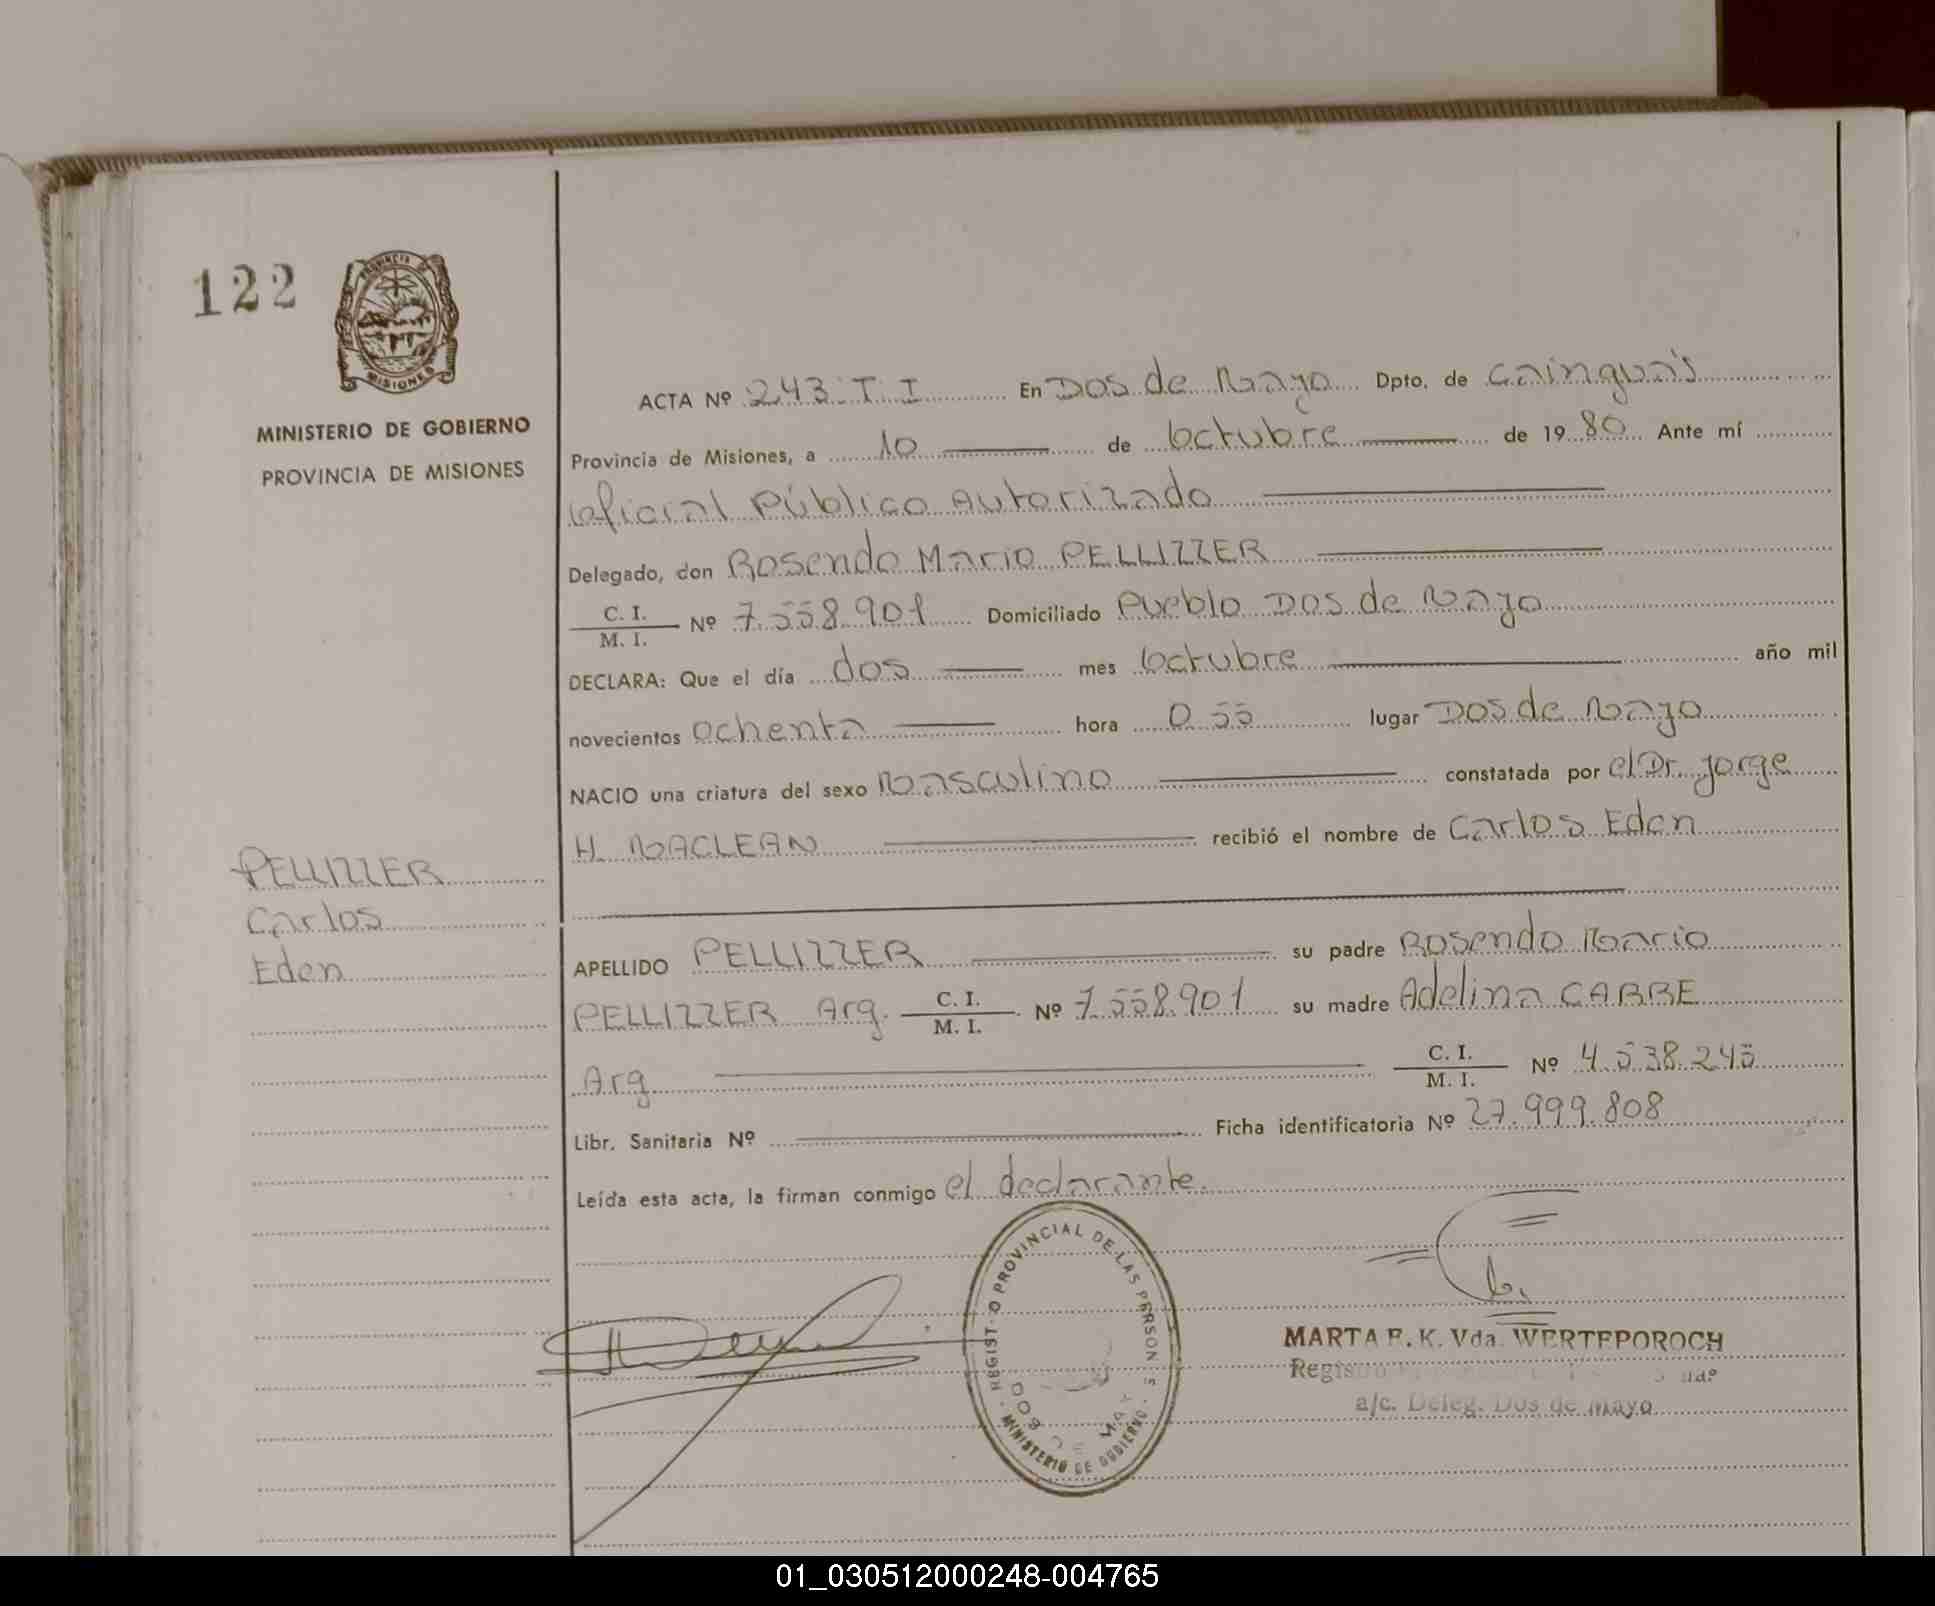 122
PROVINCIA DE
MISIONES
MINISTERIO DE GOBIERNO
PROVINCIA DE MISIONES
ACTA Nº 243 T I En Dos de Mayo Dpto. de Cainguás
Provincia de Misiones, a 10 de Octubre de 1980 Ante mí
Oficial Público Autorizado
Delegado, don Rosendo Mario PELLIZZER
C. I.
M. I. Nº 7.558.901 Domiciliado Pueblo Dos de Mayo
DECLARA: Que el día dos mes Octubre año mil
novecientos ochenta hora 0.55 lugar Dos de Mayo
NACIO una criatura del sexo Masculino constatada por el Dr. Jorge
H. MACLEAN recibió el nombre de Carlos Eden
PELLIZZER
Carlos
Eden
APELLIDO PELLIZZER su padre Rosendo Mario
PELLIZZER Arg. C. I.
M. I. Nº 7.558.901 su madre Adelina CABRE
Arg C. I.
M. I. Nº 4.538.245
Libr. Sanitaria Nº Ficha identificatoria Nº 27.999.808
Leída esta acta, la firman conmigo el declarante.
REGIST O PROVINCIAL DE LAS PERSON S
DOS DE MAY
MINISTERIO DE GOBIERNO
MARTA E. K. Vda. WERTEPOROCH
a/c. Deleg. Dos de Mayo
01_030512000248-004765